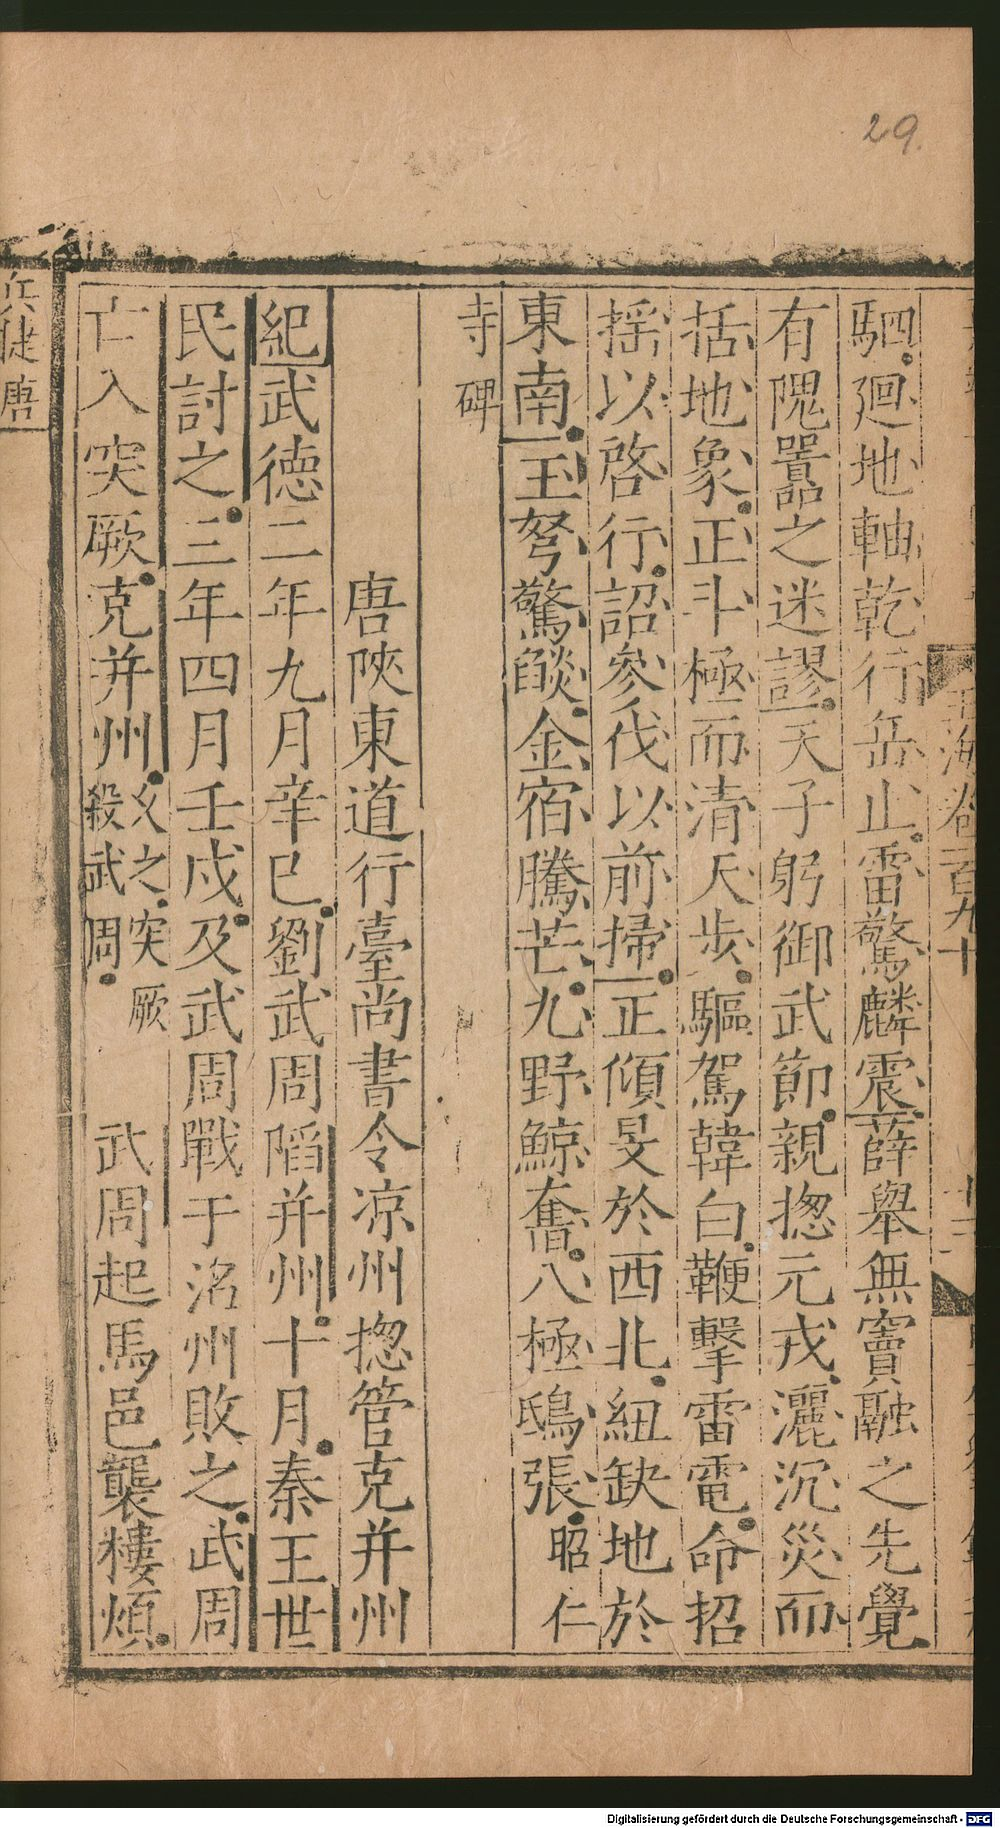 29.
玉海卷一百九十
駟廻地軸乾行岳止雷驚麟震薛舉無竇融之先覺
有隗囂之迷謬天子躬御武節親揔元戎灑沉災而
括地象正斗極而清天步驅駕韓白鞭撃雷電命招
搖以啓行詔參伐以前掃正傾旻於西北紐缺地於
東南玉弩驚燄金宿騰芒九野鯨奮八極鴟張昭仁
寺碑
唐陜東道行臺尚書令凉州揔管克并州
紀武德二年九月辛巳劉武周陷并州十月秦王世
民討之三年四月壬戍及武周戰于洺州敗之武周
亡入突厥克并州又之突厥殺武周武周起馬邑襲樓煩
兵捷唐
Digitalisierung gefördert durch die Deutsche Forschungsgemeinschaft - DFG